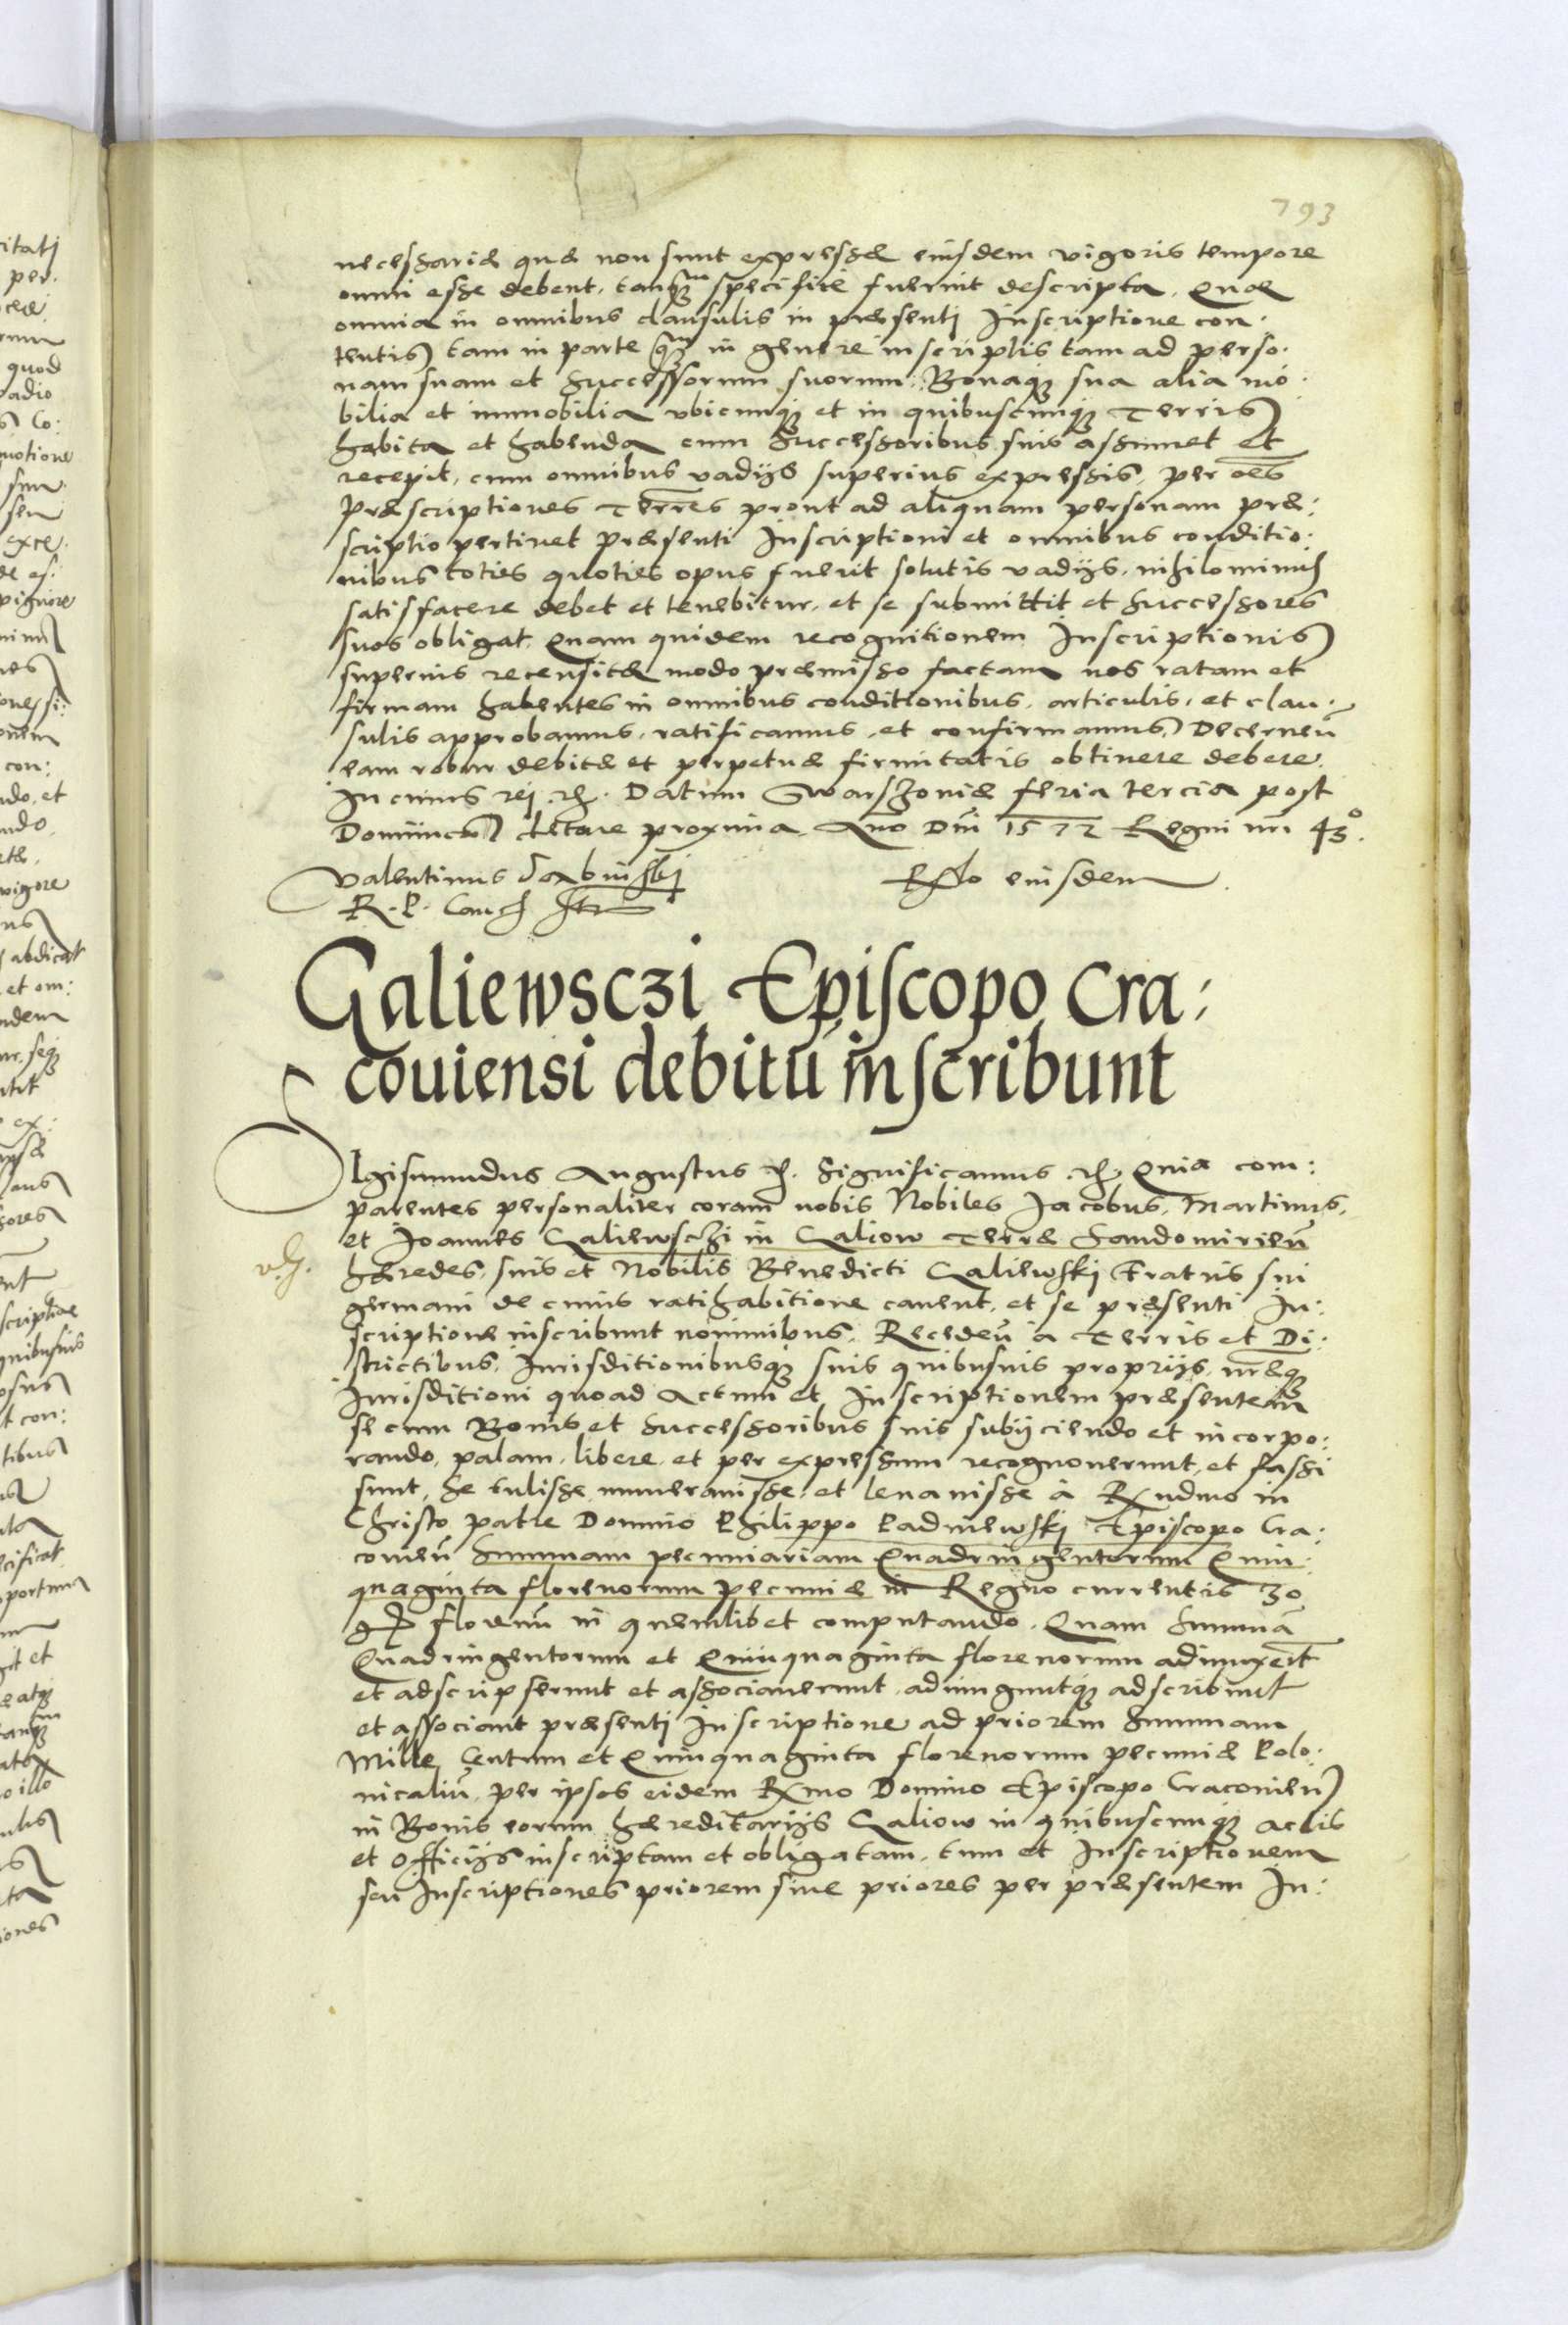 793
necessariæ quæ non sunt expressæ eiusdem vigoris tempore
omni esse debent, tanq̃ specifice fuerint descripta. Quæ
omnia in omnibus clausulis in præsenti Inscriptione con:
tentis tam in parte q̃ in genere inscriptis tam ad perso:
nam suam et Successorum suorum. Bonaq; sua alia mo:
bilia et immobilia vbicunq; et in quibuscunq; Terris
habita et habenda cum Successoribus suis assumet et
recepit, cum omnibus vadijs superius expressis, per oẽs
præscriptiones Terrẽs prout ad aliquam personam præ:
scriptio pertinet præsenti Inscriptioni et omnibus conditio:
nibus toties quoties opus fuerit solutis vadijs, nihilominus
satisfacere debet et tenebitur, et se submittit et Successores
suos obligat. Quam quidem recognitionem Inscriptionis
superius recensitæ modo præmisso factam nos ratam et
firmam habentes in omnibus conditionibus, articulis, et clau:
sulis approbamus, ratificamus, et confirmamus, Decerneñ
eam robur debitæ et perpetuæ firmitatis obtinere debere.
In cuius rej. &c. Datum Warszoniæ feria tercia post
Dominicã Lætare proxima, Ano Dni 1572 Regni nri 43º.
Valentinus Dembinskj
Rlo eiusdem
R. P. Canc
Galiewsczi Episcopo Cra:
couiensi debitũ inscribunt
SIgismundus Augustus &c. Significamus &c. Quia com:
parentes personaliter coram nobis Nobiles Jacobus, Martinus,
et Joannes Galiewsczi in Galiow Terræ Sandomirieñ
hæredes, suis et Nobilis Benedicti Galiewskj Fratris sui
germani de cuius ratihabitione cauent, et se præsenti In:
scriptione inscribunt nominibus. Recedeñ à Terris et Di:
strictibus, Jurisditionibusq; suis quibusuis proprijs, nræq;
Jurisditioni quoad Actum et Inscriptionem præsentem
se cum Bonis et Successoribus suis subijciendo et incorpo:
rando, palam, libere, et per expressum recognouerunt, et fassi
sunt, Se tulisse, numerauisse, et leuauisse à Rxndmo in
Christo patre Domino Philippo Padniewskj Episcopo Cra:
couieñ Summam pecuniariam Quadringentorum Quin:
quaginta florenorum pecuniæ in Regno currentis 30
gr florenũ in quemlibet computando. Quam Summã
Quadringentorum et Quinquaginta florenorum adiunxerũt
et adscripserunt et associauerunt, adiunguntq; adscribunt
et associant præsenti Inscriptione ad priorem Summam
Mille Centum et Quinquaginta florenorum pecuniæ Polo:
nicaliũ, per ipsos eidem Rxmo Domino Episcopo Cracouieñ
in Bonis eorum hæreditarijs Galiow in quibuscunq; Actis
et Officijs inscriptam et obligatam, tum et Inscriptionem
seu Inscriptiones priorem siue priores per præsentem In: